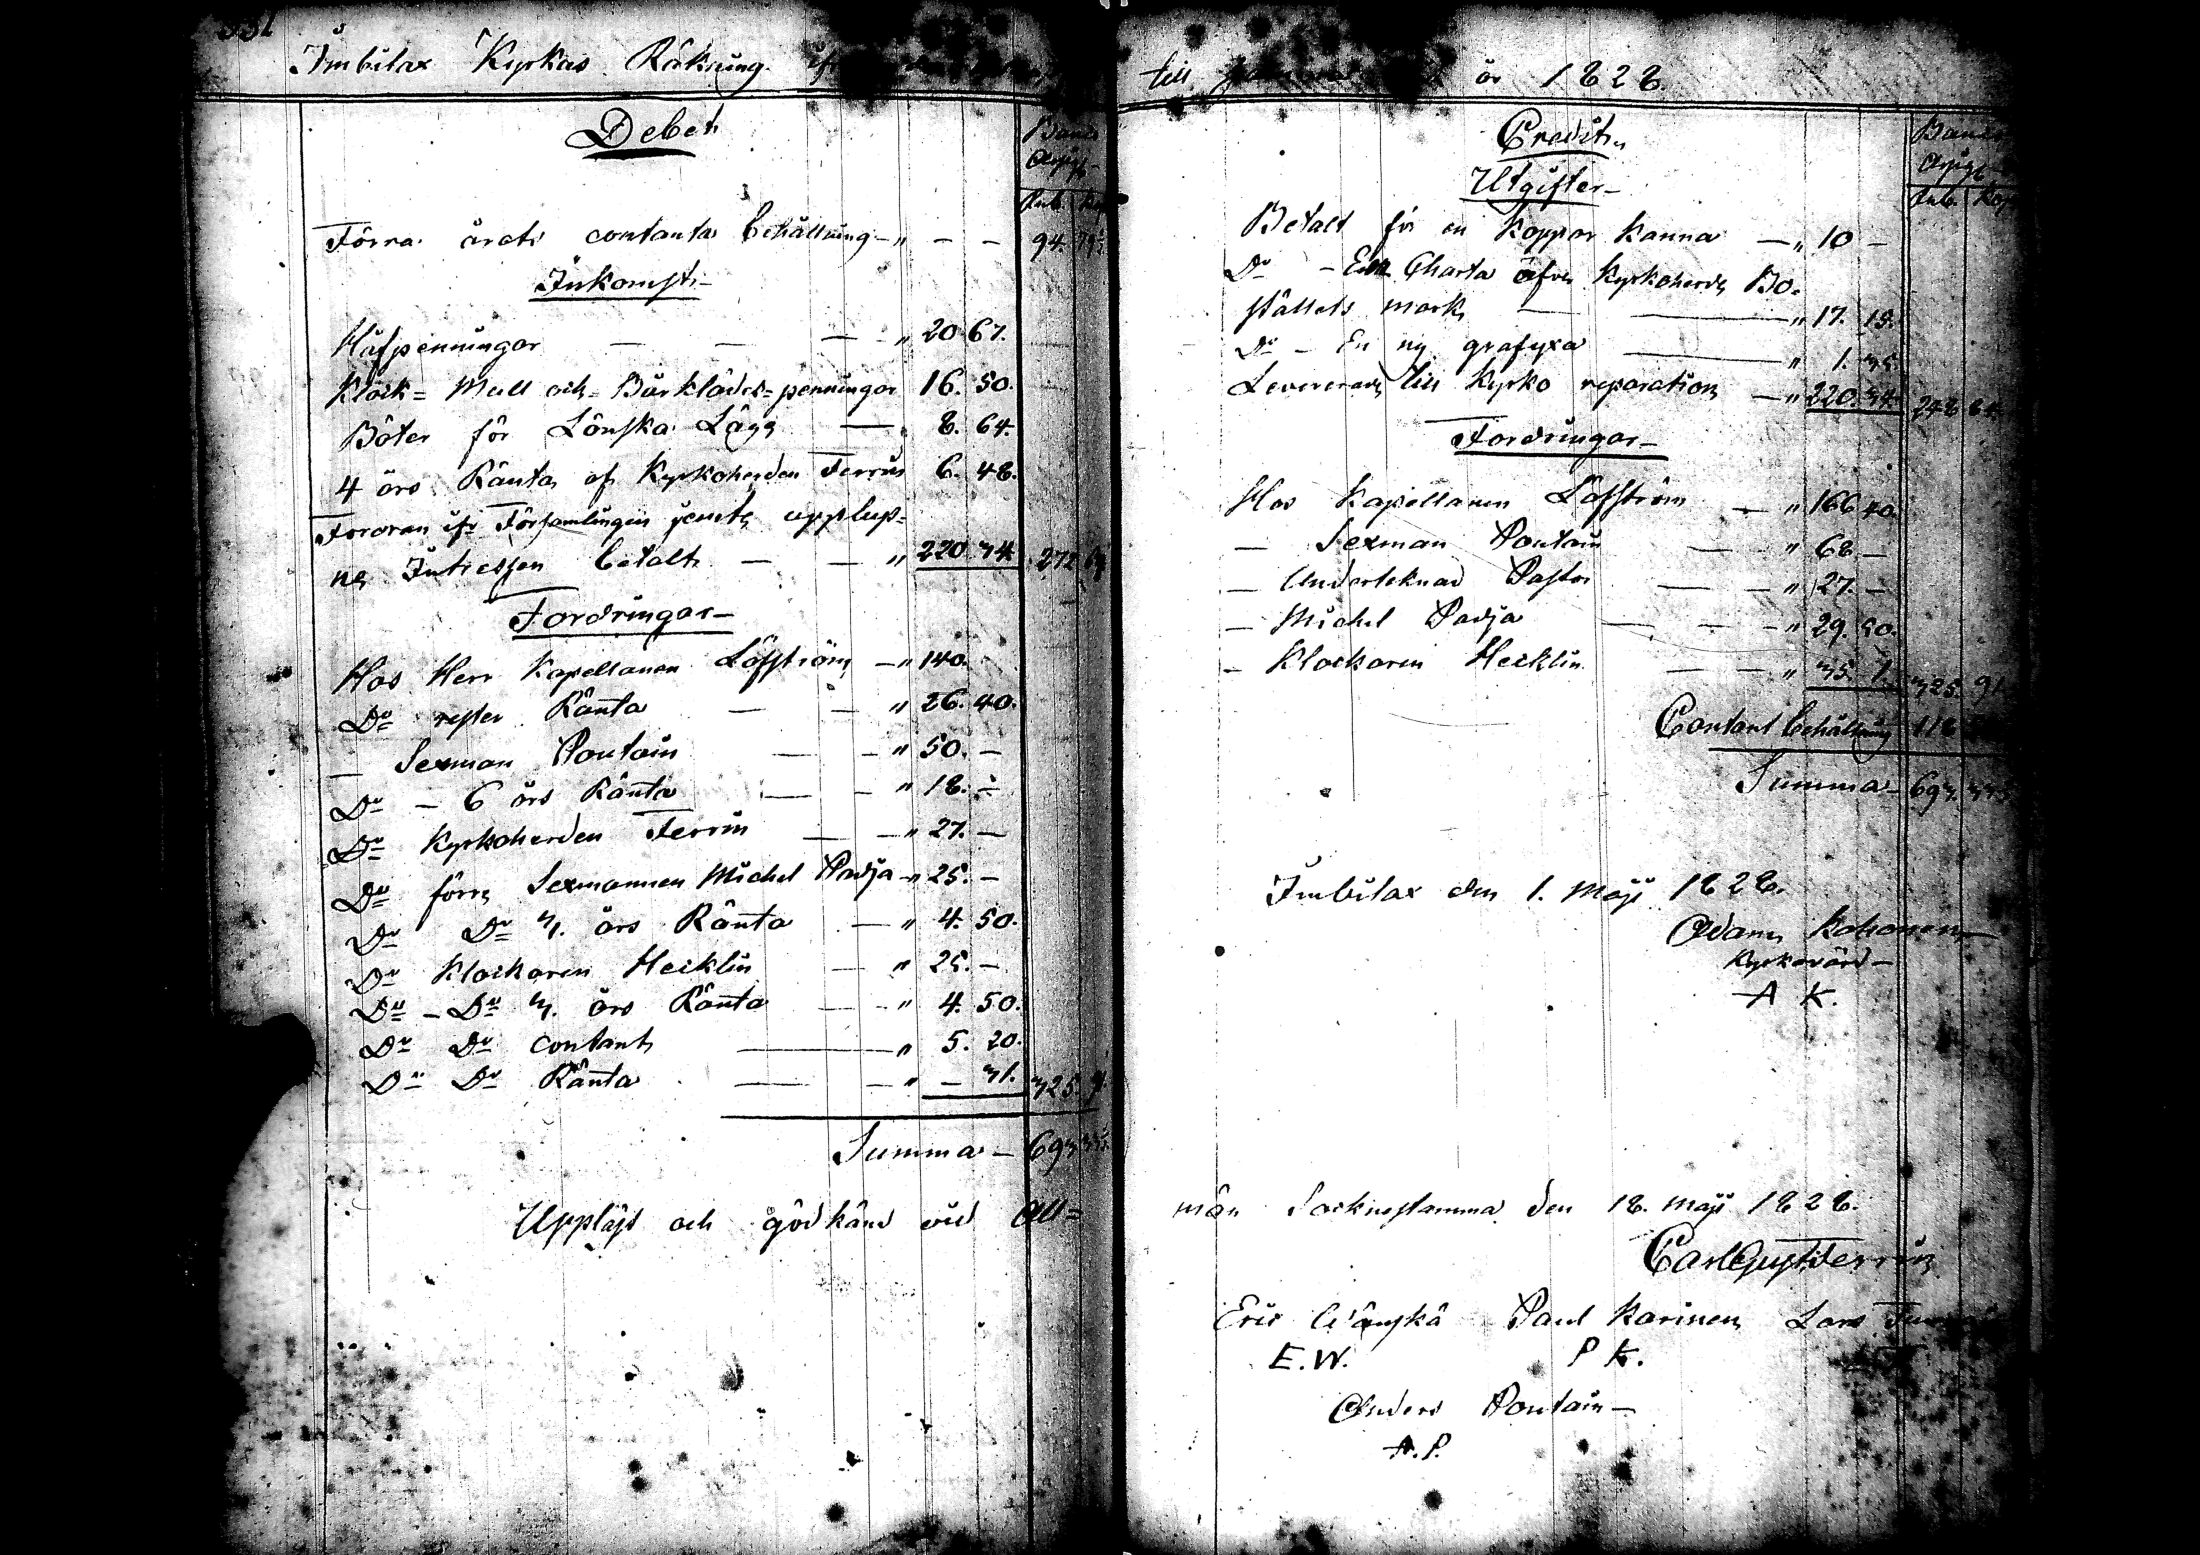 Imbilax Kyrkas Räkning
Debet
Banco
Assign.
Rub. Kop.
Förra årets contanta behållning — " — — 94. 79½
Inkomst
Håfpenningar — — — " 20. 67.
Klock= Mull och Bårklädes=penningar 16. 50.
Böter för Lönska Läge — 8. 64.
4 års Ränta af Kyrkoherden Ferrin 6. 48.
Fordran af Församlingen jemte upplup=
ne Intressen betalt — — " 220. 34. 272.
Fordringar
Hos Herr Kapellanen Löfström — " 140.
Do rester Ränta — — " 26. 40.
— Sexman Poutain — — " 50. —
Do — 6 års Ränta — — " 18. —
Do Kyrkoherden Ferrin — — " 27. —
Do förre Sexmannen Michel Padja — " 25. —
Do Do 3. års Ränta — " 4. 50.
Do Klockaren Hecklin — " 25. —
Do — Do 3. års Ränta — — " 4. 50.
Do Do contant — " 5. 20.
Do Do Ränta — — " — 31. 325. 91.
Summa — 693.
Uppläst och godkänd vid All=
till år 1828.
Credit
Utgifter
Banco
Assign.
Rub. Kop.
Betalt för en Koppar Kanna — " 10 —
Do — En Charta öfver Kyrkoherde Bo=
ställets mark — — " 17. 15.
Do — En ny grafyxa — " 1. 35.
Levererade till Kyrko reparation — " 220. 34. 248. 84.
Fordringar
Hos Kapellanen Löfström — " 166. 40.
— Sexman Poutain — — " 68 —
— Undertecknad Pastor — — " 27. —
— Michel Padja — — — " 29. 50.
— Klockaren Hecklin — — " 35. 1. 325. 91.
Contant behållning 118
Summa — 693.
Imbilax den 1. Maji 1828.
Adam Kohonen
Kyrkovärd
A K.
män Socknestamma den 18. Maji 1828.
Carl Gust. Ferrin
Eric Wänskä Paul Karinen Lars
E. W. P K.
Anders Poutain
A. P.